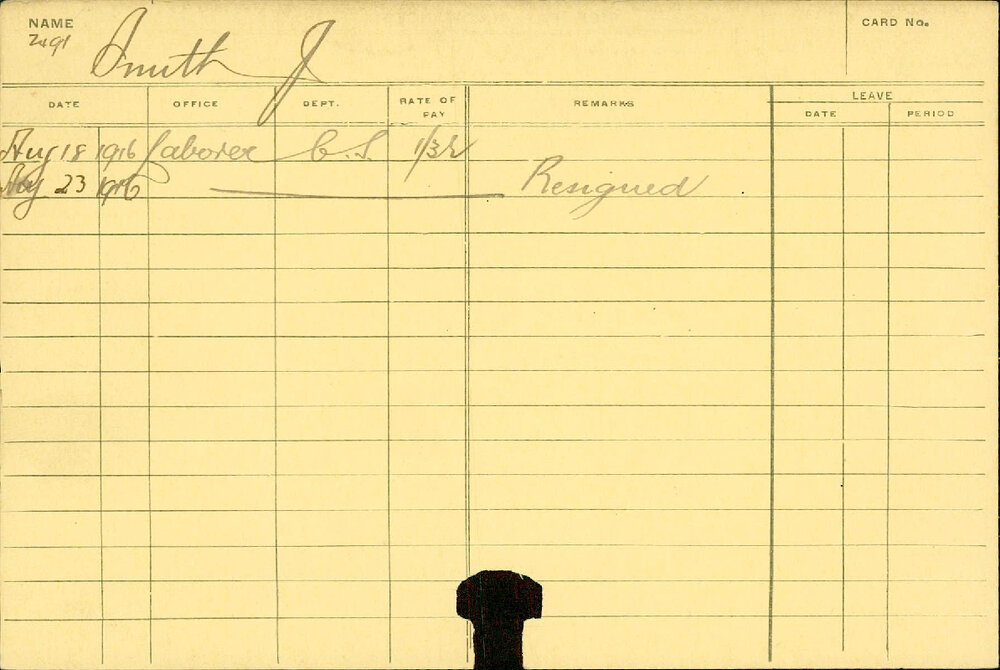 NAME
CARD No.
2491
Smith J
DATE OFFICE DEPT. RATE OF PAY REMARKS LEAVE
DATE PERIOD
Aug 18 1916 Laborer C.S. 1/3½
Aug 23 1916 Resigned